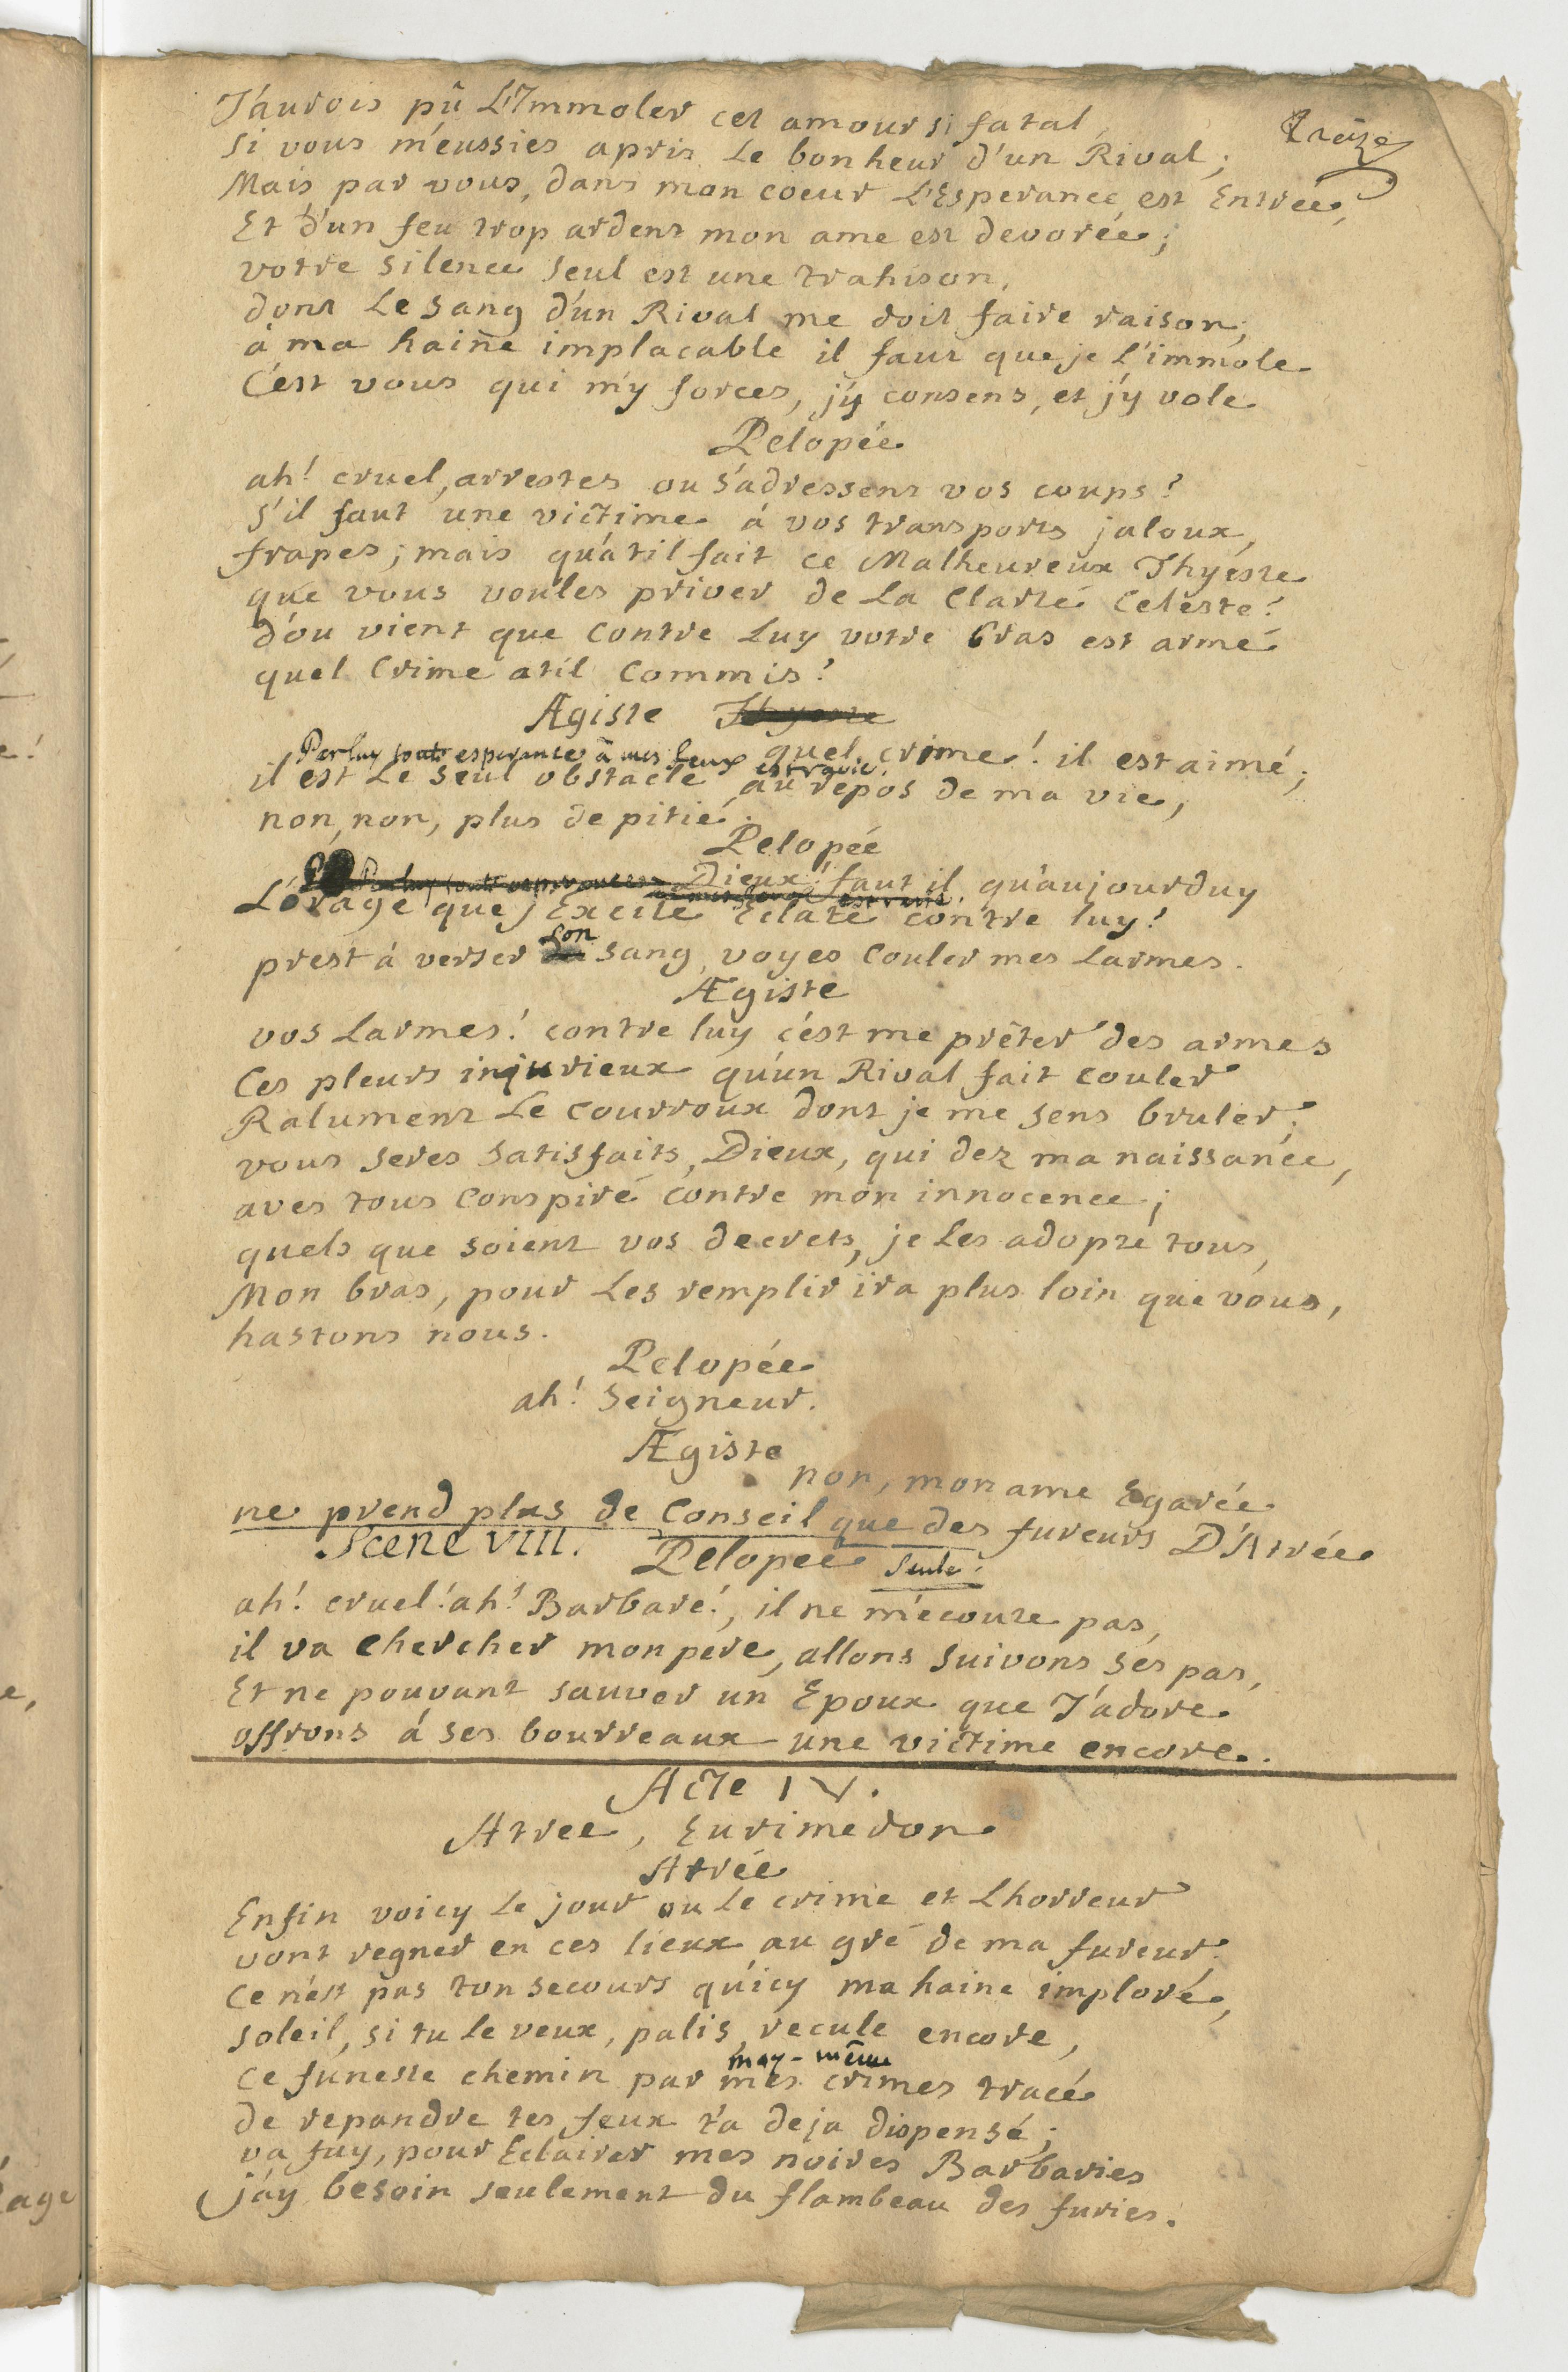 J'aurois pû L'Immoler cet amour si fatal,
Treize
Si vous m'eussies apris Le bonheur d'un Rival;
Mais par vous, dans mon coeur L'Esperance est Entrée,
Et d'un feu trop ardent mon ame est devorée;
votre silence seul est une trahison,
dont Le sang d'un Rival me doit faire raison;
à ma haine implacable il faut que je L'immole
C'est vous qui m'y forces, j'y consens, et j'y vole
Pelopée
ah! cruel, arrestes ou s'adressent vos coups?
s'il faut une victime à vos transports jaloux,
frapes; mais qu'atil fait ce Malheureux Thyeste
que vous voules priver de La Clarté Celeste?
d'ou vient que Contre Luy votre bras est armé
quel Crime atil Commis?
Ægiste Thyeste
quel crime! il est aimé;
Par luy toute esperance à mes feux est ravie.
il est Le seul obstacle au repos de ma vie;
non, non, plus de pitié.
Pelopée
Par luy toute esperance Dieux! faut il qu'aujourduy
à mes feux est ravie.
L'orage que j'Excite Eclate contre luy!
son
prest à verser sang, voyes Couler mes Larmes.
Ægiste
vos Larmes! contre luy c'est me prêter des armes
Ces pleurs injurieux qu'un Rival fait couler
Ralument Le Courroux dont je me sens bruler;
vous seres satisfaits, Dieux, qui dez ma naissance,
aves tous Conspiré Contre mon innocence;
quels que soient vos decrets, je Les adopte tous,
Mon bras, pour Les remplir ira plus loin que vous,
hastons nous.
Pelopée
ah! Seigneur.
Ægiste
non, mon ame Egarée
ne prend plus de Conseil que des fureurs D'Atrée
Scene VIII. Pelopée seule.
ah! cruel! ah! Barbare!, il ne m'ecoute pas,
il va Chercher mon pere, allons suivons ses pas,
Et ne pouvant sauver un Epoux que J'adore
offrons à ses bourreaux une victime encore.
Acte IV.
Atree, Eurimedon
Atrée
Enfin voicy Le jour ou Le crime et Lhorreur
vont regner en ces lieux au gré de ma fureur;
Ce n'est pas ton secours qu'icy ma haine implore,
soleil, si tu Le veux, palis, recule encore,
moy-même
Ce funeste chemin par mes crimes tracé
de repandre tes feux t'a deja dispensé;
va fuy, pour Eclairer mes noires Barbaries
j'ay besoin seulement du flambeau des furies.